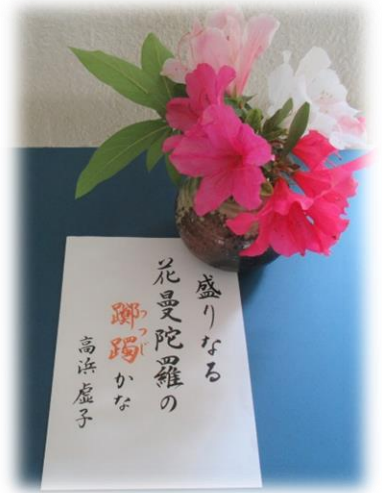 盛りなる
花曼陀羅の
躑躅かな
つつじ
高浜虚子